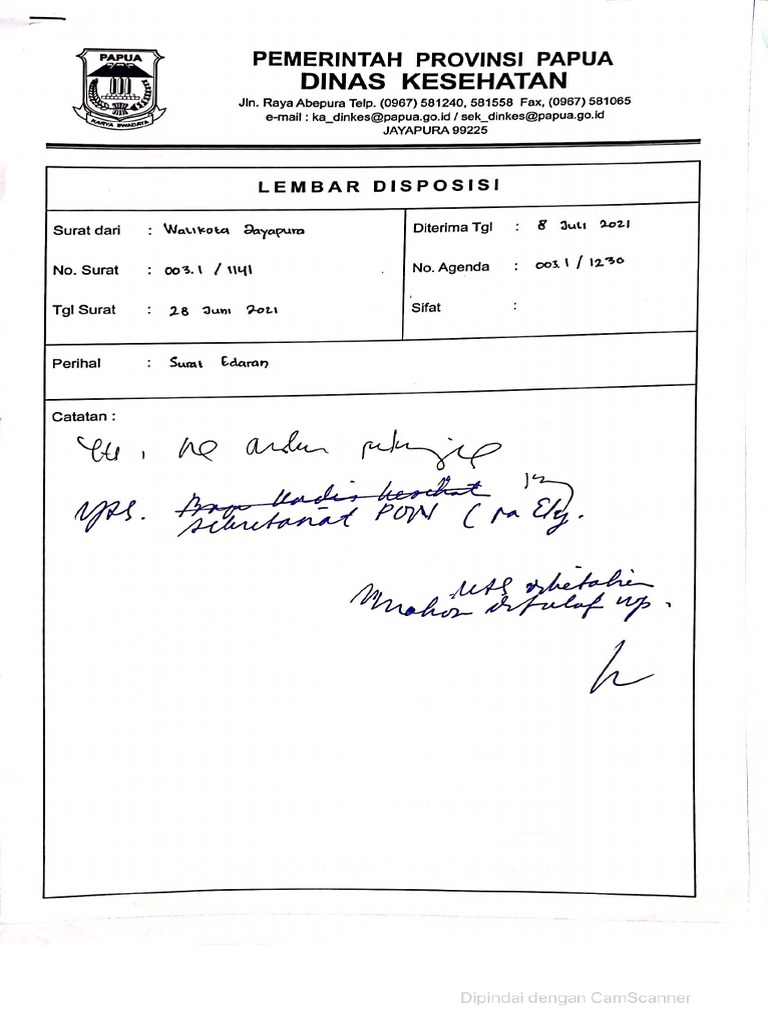 PAPUA
KARYA SWADAYA
PEMERINTAH PROVINSI PAPUA
DINAS KESEHATAN
Jln. Raya Abepura Telp. (0967) 581240, 581558 Fax, (0967) 581065
e-mail : ka_dinkes@papua.go.id / sek_dinkes@papua.go.id
JAYAPURA 99225
LEMBAR DISPOSISI
Surat dari : Walikota Jayapura
Diterima Tgl : 8 Juli 2021
No. Surat : 003.1 / 1141
No. Agenda : 003.1 / 1230
Tgl Surat : 28 Juni 2021
Sifat :
Perihal : Surat Edaran
Catatan :
sekretariat PON
Dipindai dengan CamScanner